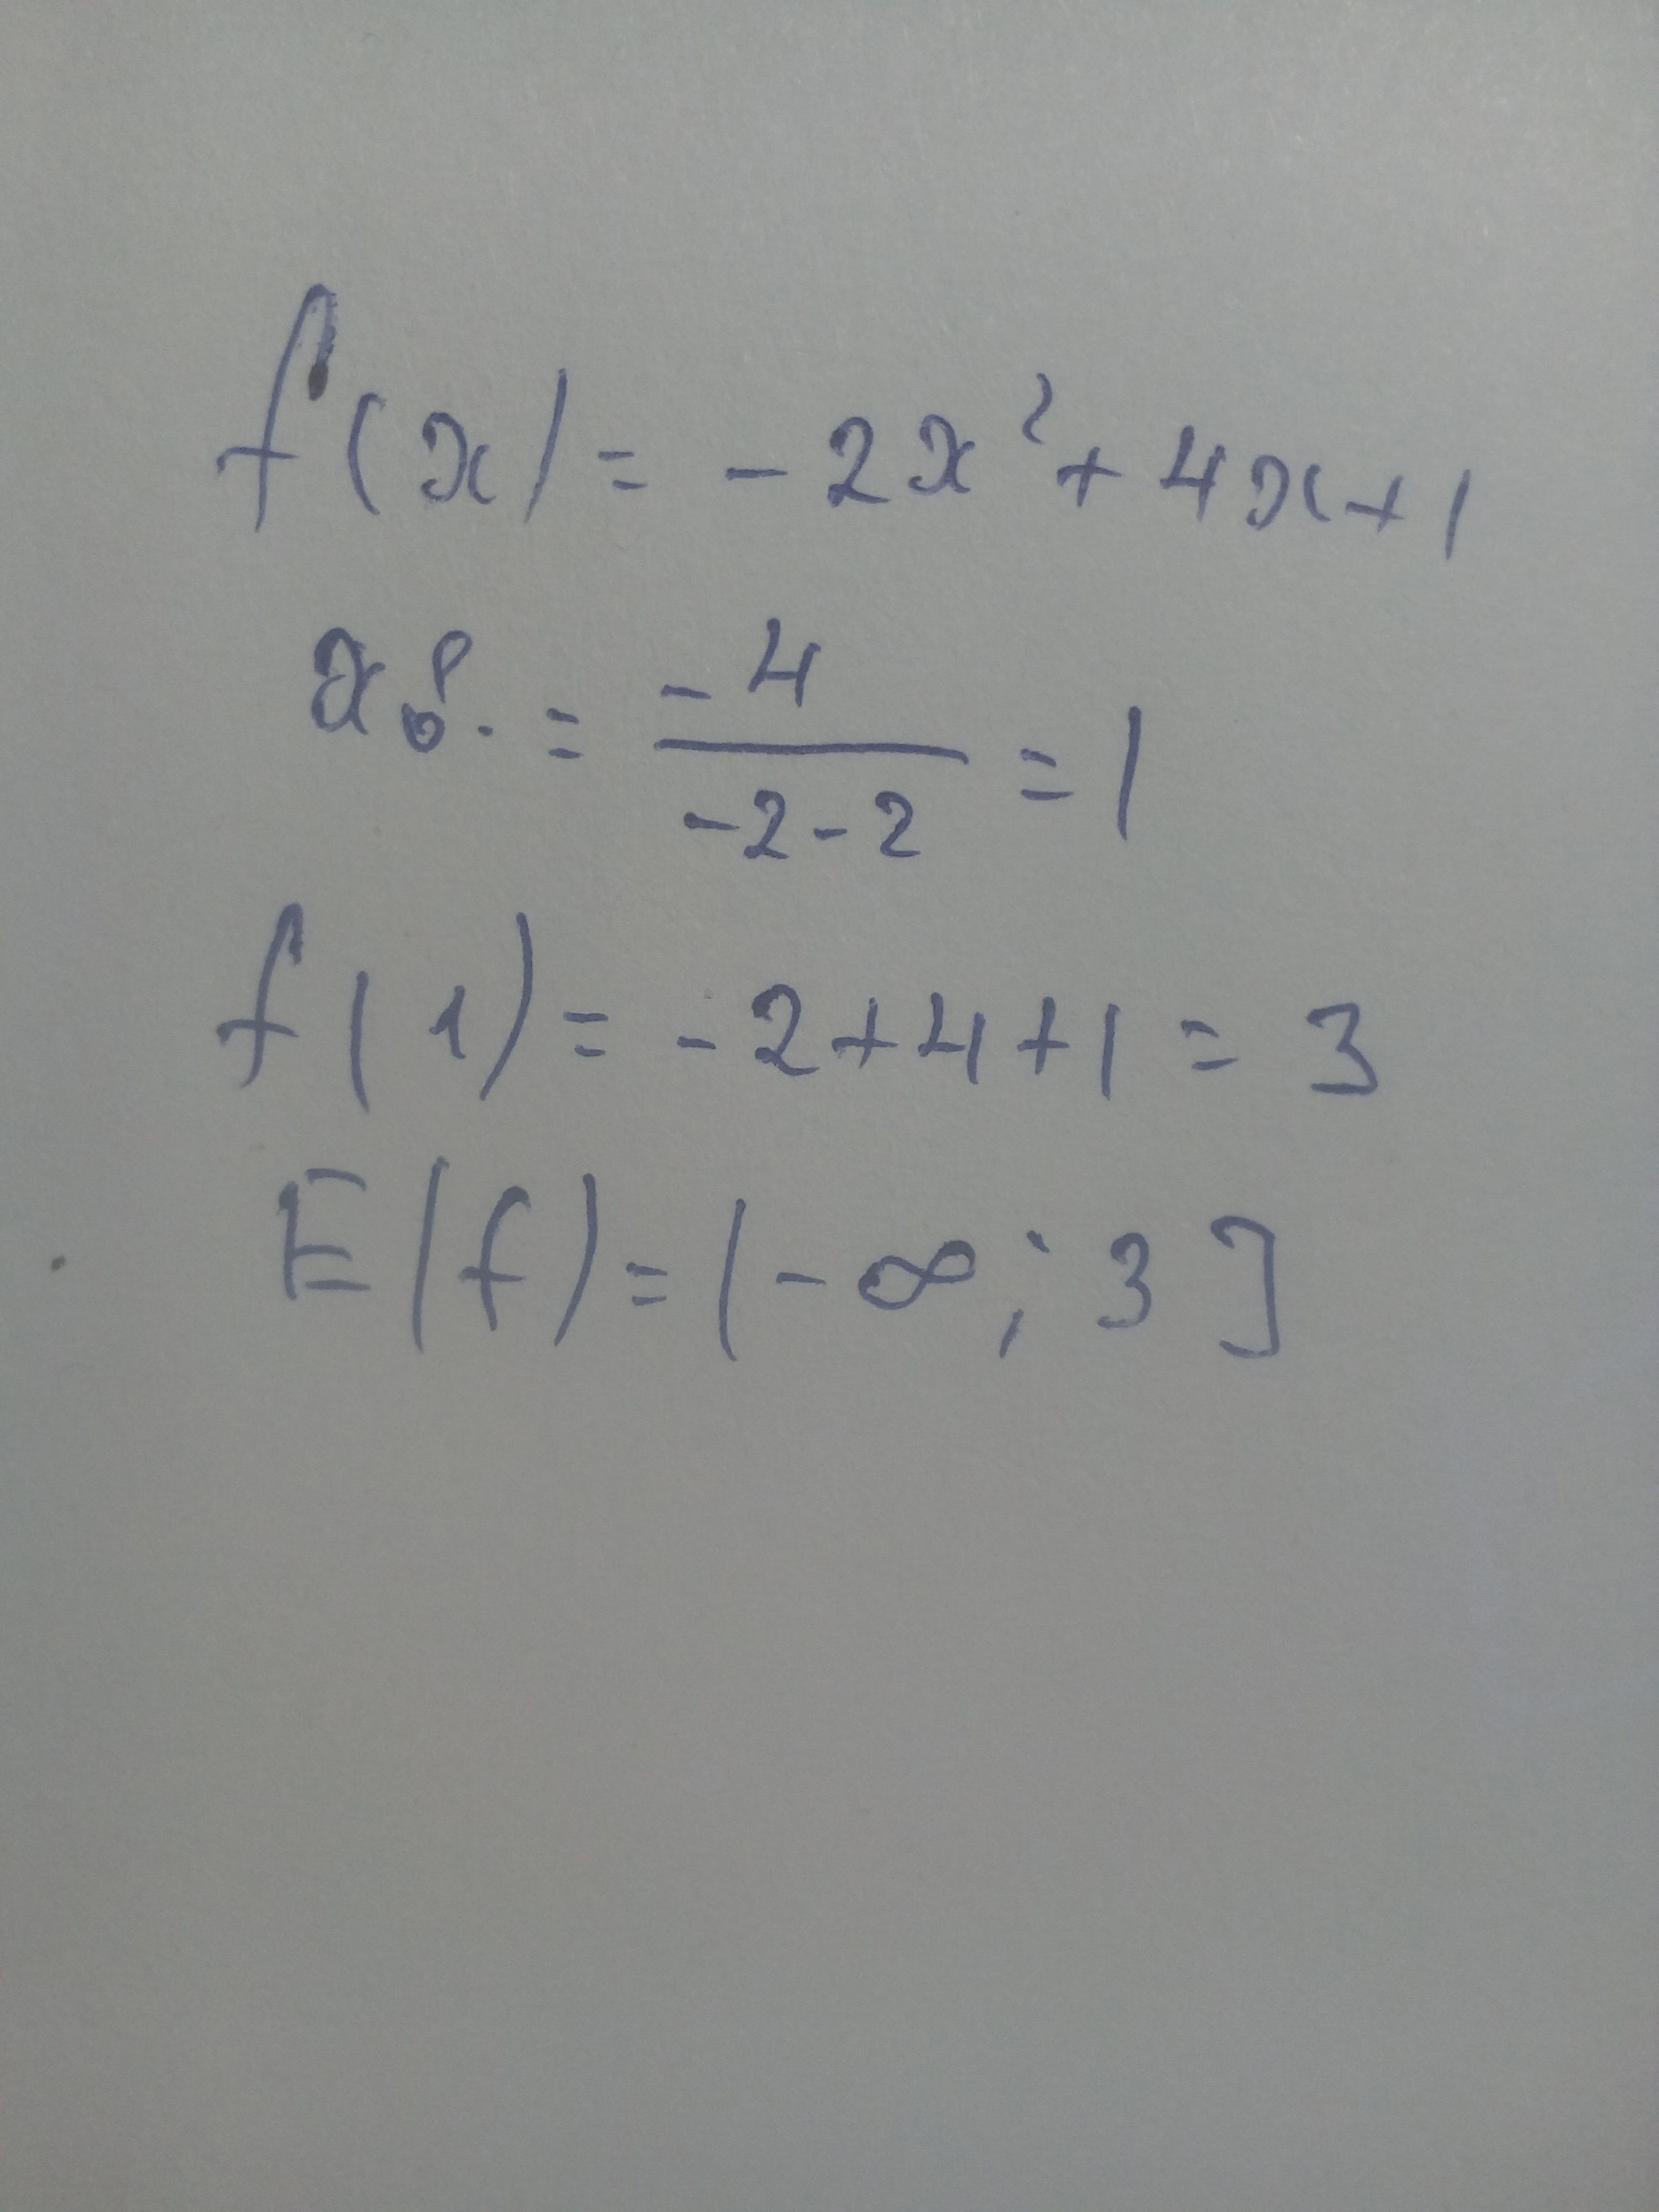 f(x) = -2x² + 4x + 1
xв. = -4 / -2-2 = 1
f(1) = -2+4+1 = 3
E(f) = (-∞; 3]